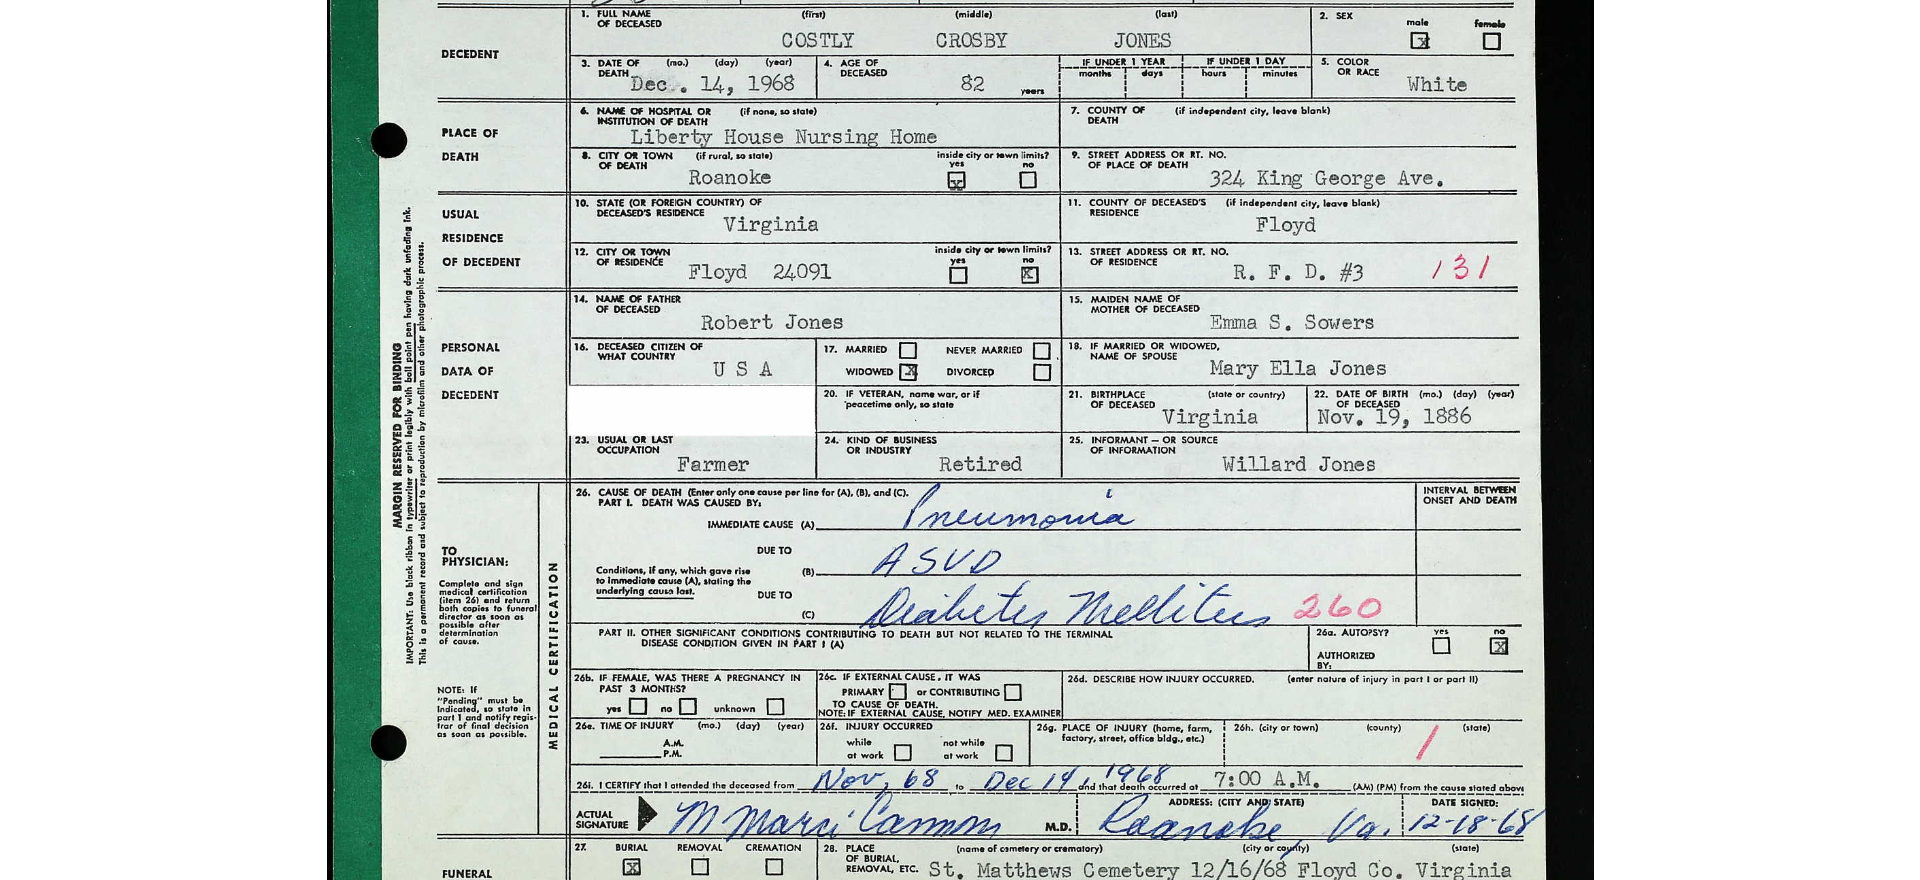 1. FULL NAME OF DECEASED (first) (middle) (last) 2. SEX male female
COSTLY CROSBY JONES x
DECEDENT
3. DATE OF DEATH (mo.) (day) (year) 4. AGE OF DECEASED IF UNDER 1 YEAR months days IF UNDER 1 DAY hours minutes 5. COLOR OR RACE
Dec. 14, 1968 82 years White
PLACE OF DEATH
6. NAME OF HOSPITAL OR INSTITUTION OF DEATH (if none, so state) 7. COUNTY OF DEATH (if independent city, leave blank)
Liberty House Nursing Home
8. CITY OR TOWN OF DEATH (if rural, so state) inside city or town limits? yes no 9. STREET ADDRESS OR RT. NO. OF PLACE OF DEATH
Roanoke x 324 King George Ave.
USUAL RESIDENCE OF DECEDENT
10. STATE (OR FOREIGN COUNTRY) OF DECEASED'S RESIDENCE 11. COUNTY OF DECEASED'S RESIDENCE (if independent city, leave blank)
Virginia Floyd
12. CITY OR TOWN OF RESIDENCE inside city or town limits? yes no 13. STREET ADDRESS OR RT. NO. OF RESIDENCE
Floyd 24091 x R. F. D. #3 131
14. NAME OF FATHER OF DECEASED 15. MAIDEN NAME OF MOTHER OF DECEASED
Robert Jones Emma S. Sowers
PERSONAL DATA OF DECEDENT
16. DECEASED CITIZEN OF WHAT COUNTRY 17. MARRIED NEVER MARRIED 18. IF MARRIED OR WIDOWED, NAME OF SPOUSE
U S A WIDOWED x DIVORCED Mary Ella Jones
20. IF VETERAN, name war, or if peacetime only, so state 21. BIRTHPLACE OF DECEASED (state or country) 22. DATE OF BIRTH OF DECEASED (mo.) (day) (year)
Virginia Nov. 19, 1886
23. USUAL OR LAST OCCUPATION 24. KIND OF BUSINESS OR INDUSTRY 25. INFORMANT — OR SOURCE OF INFORMATION
Farmer Retired Willard Jones
MARGIN RESERVED FOR BINDING
IMPORTANT: Use black ribbon in typewriter or print legibly with ball point pen having dark unfading ink.
This is a permanent record and subject to reproduction by microfilm and other photographic process.
26. CAUSE OF DEATH (Enter only one cause per line for (A), (B), and (C). INTERVAL BETWEEN ONSET AND DEATH
PART I. DEATH WAS CAUSED BY:
IMMEDIATE CAUSE (A) Pneumonia
DUE TO
(B) ASVD
Conditions, if any, which gave rise to immediate cause (A), stating the underlying cause last.
DUE TO
(C) Diabetes Mellitus 260
TO PHYSICIAN:
Complete and sign medical certification (item 26) and return both copies to funeral director as soon as possible after determination of cause.
MEDICAL CERTIFICATION
PART II. OTHER SIGNIFICANT CONDITIONS CONTRIBUTING TO DEATH BUT NOT RELATED TO THE TERMINAL DISEASE CONDITION GIVEN IN PART I (A)
26a. AUTOPSY? yes no x
AUTHORIZED BY:
NOTE: If "Pending" must be indicated, so state in part 1 and notify registrar of final decision as soon as possible.
26b. IF FEMALE, WAS THERE A PREGNANCY IN PAST 3 MONTHS? yes no unknown
26c. IF EXTERNAL CAUSE, IT WAS PRIMARY or CONTRIBUTING TO CAUSE OF DEATH.
NOTE: IF EXTERNAL CAUSE, NOTIFY MED. EXAMINER
26d. DESCRIBE HOW INJURY OCCURRED. (enter nature of injury in part I or part II)
26e. TIME OF INJURY (mo.) (day) (year) A.M. P.M.
26f. INJURY OCCURRED while at work not while at work
26g. PLACE OF INJURY (home, farm, factory, street, office bldg., etc.)
26h. (city or town) (county) (state)
1
26i. I CERTIFY that I attended the deceased from Nov, 68 to Dec 14, 1968 and that death occurred at 7:00 A.M. (AM) (PM) from the cause stated above
ADDRESS: (CITY AND STATE) DATE SIGNED:
ACTUAL SIGNATURE M.D. Roanoke, Va. 12-18-68
27. BURIAL REMOVAL CREMATION 28. PLACE OF BURIAL, REMOVAL, ETC. (name of cemetery or crematory) (city or county) (state)
FUNERAL x St. Matthews Cemetery 12/16/68 Floyd Co. Virginia